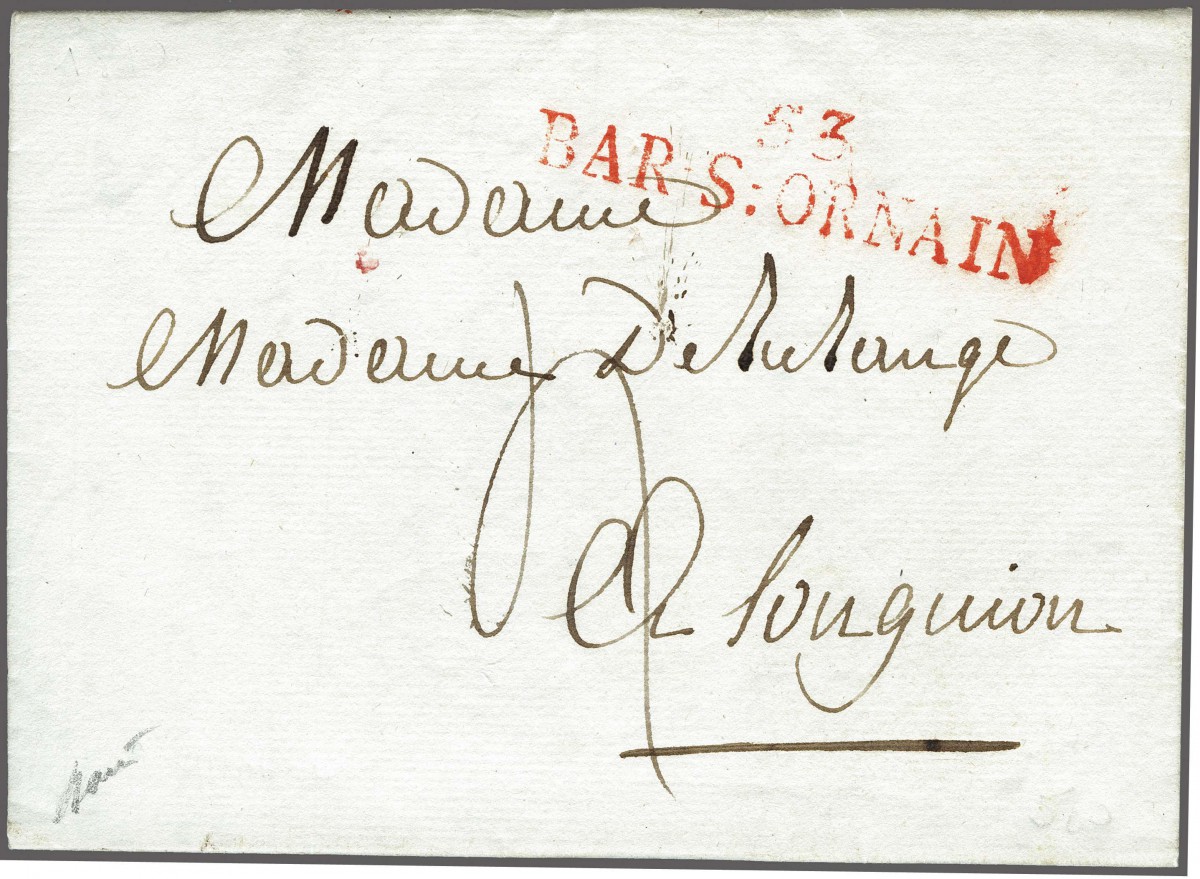 53
BAR-S:ORNAIN
Madame
Madame De
a Longuion